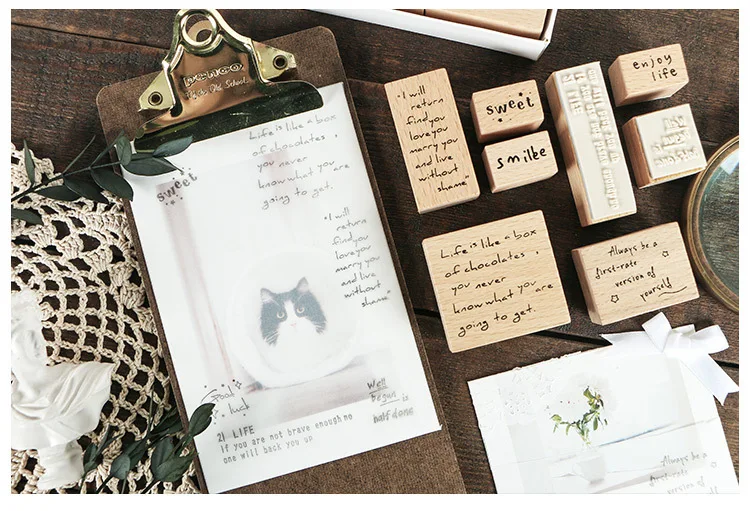 PENCO
Life is like a box
of chocolates ,
you never
know what you are
going to get.
sweet
"I will
return
find you
love you
marry you
and live
without
shame"
good
luck
Well
begun is
half done
21 LIFE
If you are not brave enough no
one will back you up
"I will
return
find you
love you
marry you
and live
without
shame"
sweet
smilke
enjoy
life
Life is like a box
of chocolates ,
you never
know what you are
going to get.
Always be a
first-rate
version of
yourself
Always be a
first-rate
version of